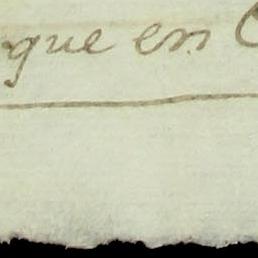 que en